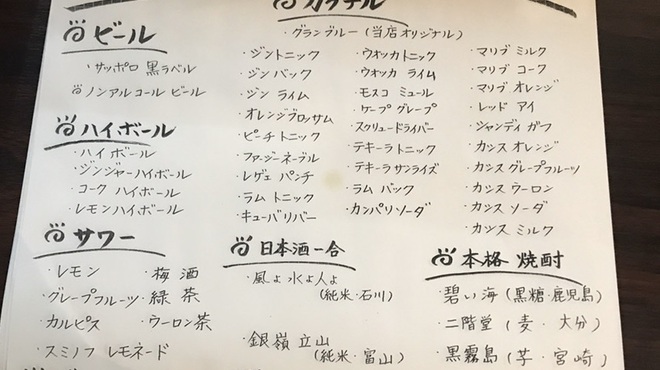 ビール
・サッポロ 黒ラベル
ノンアルコール ビール
ハイボール
・ハイボール
・ジンジャーハイボール
・コーク ハイボール
・レモンハイボール
サワー
・レモン ・梅酒
・グレープフルーツ ・緑茶
・カルピス ・ウーロン茶
・スミノフ レモネード
カクテル
・グランブルー(当店オリジナル)
・ジントニック
・ジンバック
・ジン ライム
・オレンジブロッサム
・ピーチトニック
・ファジーネーブル
・レゲェ パンチ
・ラム トニック
・キューバリバー
・ウォッカトニック
・ウォッカ ライム
・モスコ ミュール
・ケープ グレープ
・スクリュードライバー
・テキーラトニック
・テキーラサンライズ
・ラム バック
・カンパリソーダ
・マリブ ミルク
・マリブ コーク
・マリブ オレンジ
・レッド アイ
・シャンディ ガフ
・カシス オレンジ
・カシス グレープフルーツ
・カシス ウーロン
・カシス ソーダ
・カシス ミルク
日本酒一合
・風よ 水よ 人よ
(純米・石川)
・銀嶺 立山
(純米・富山)
本格 焼酎
・碧い海(黒糖・鹿児島)
・二階堂(麦・大分)
・黒霧島(芋・宮崎)